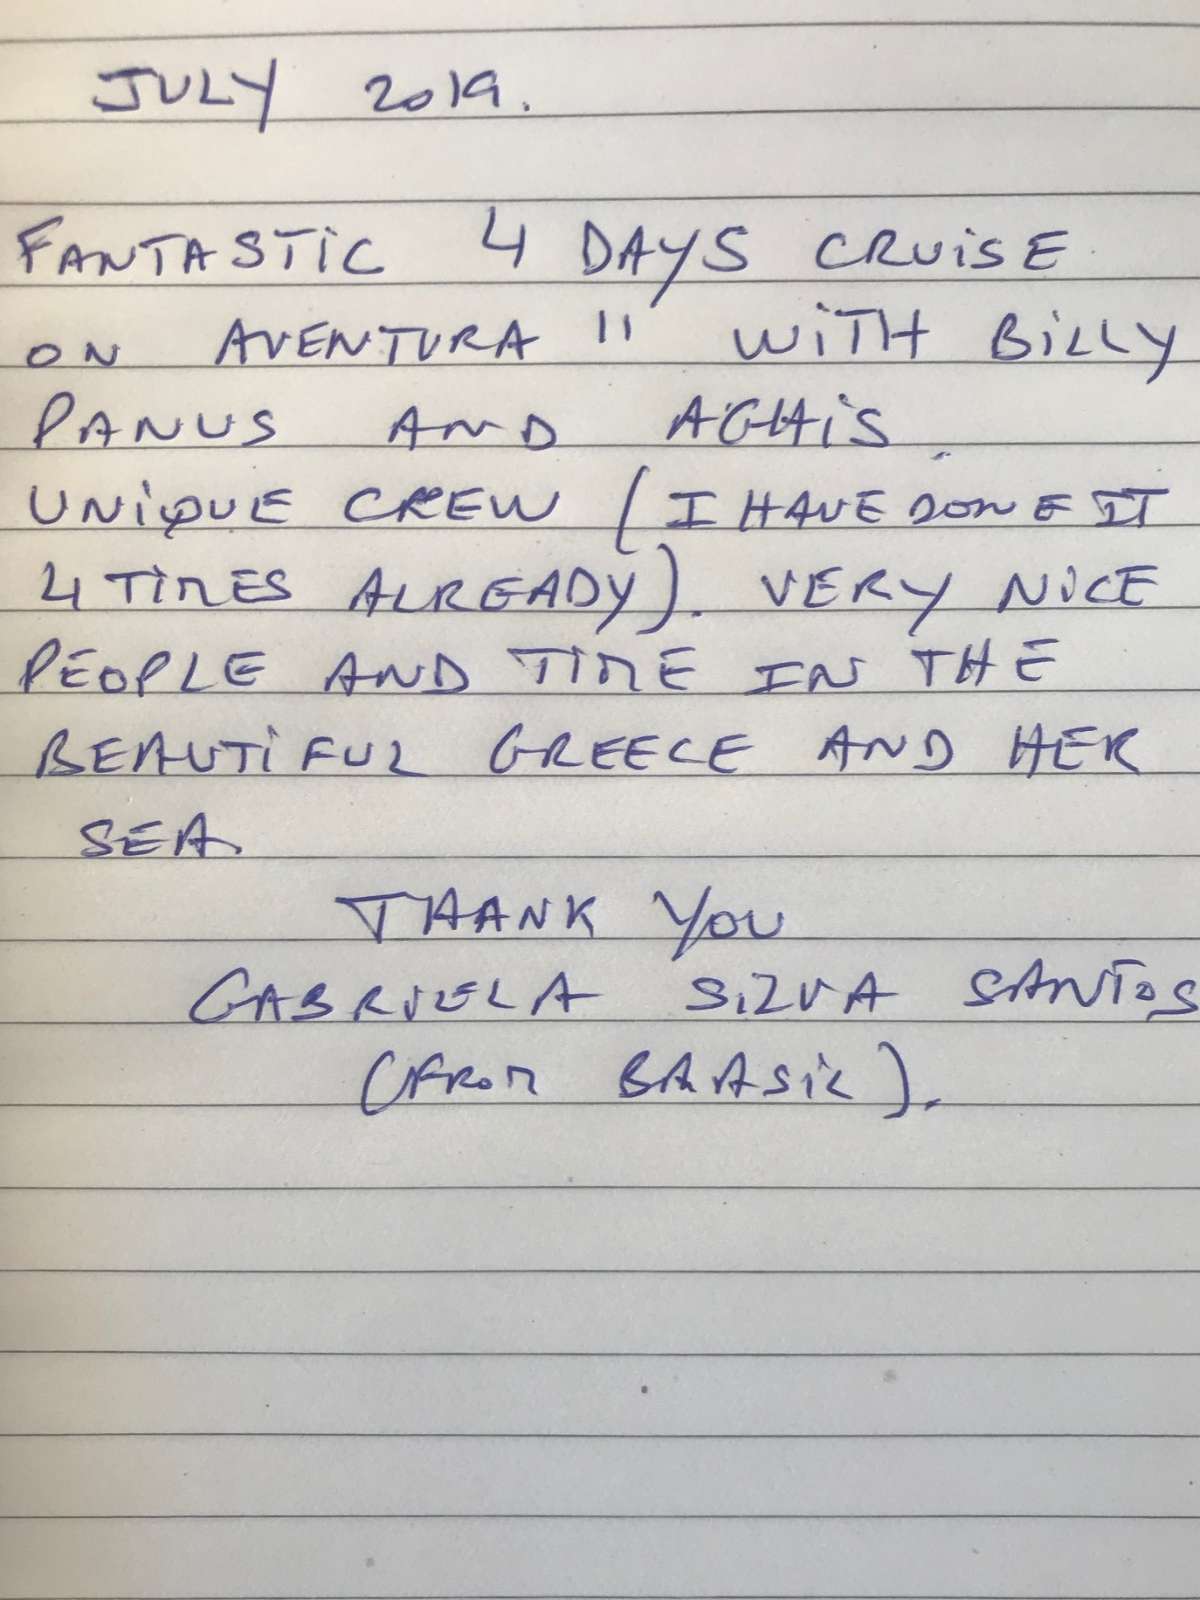 JULY 2019.
FANTASTIC 4 DAYS CRUISE
ON AVENTURA II WITH BILLY
PANUS AND AGHIS.
UNIQUE CREW (I HAVE DONE IT
4 TIMES ALREADY). VERY NICE
PEOPLE AND TIME IN THE
BEAUTIFUL GREECE AND HER
SEA.
THANK YOU
GABRIELA SILVA SANTOS
(FROM BRASIL).